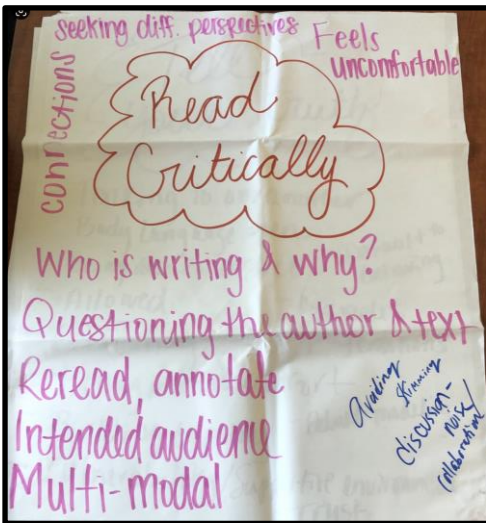 Seeking diff. perspectives
Feels
uncomfortable
connections
Read
Critically
Who is writing & why?
Questioning the author & text
Reread, annotate
Intended audience
Multi-modal
Avoiding
skimming
discussion-
noise/
collaboration